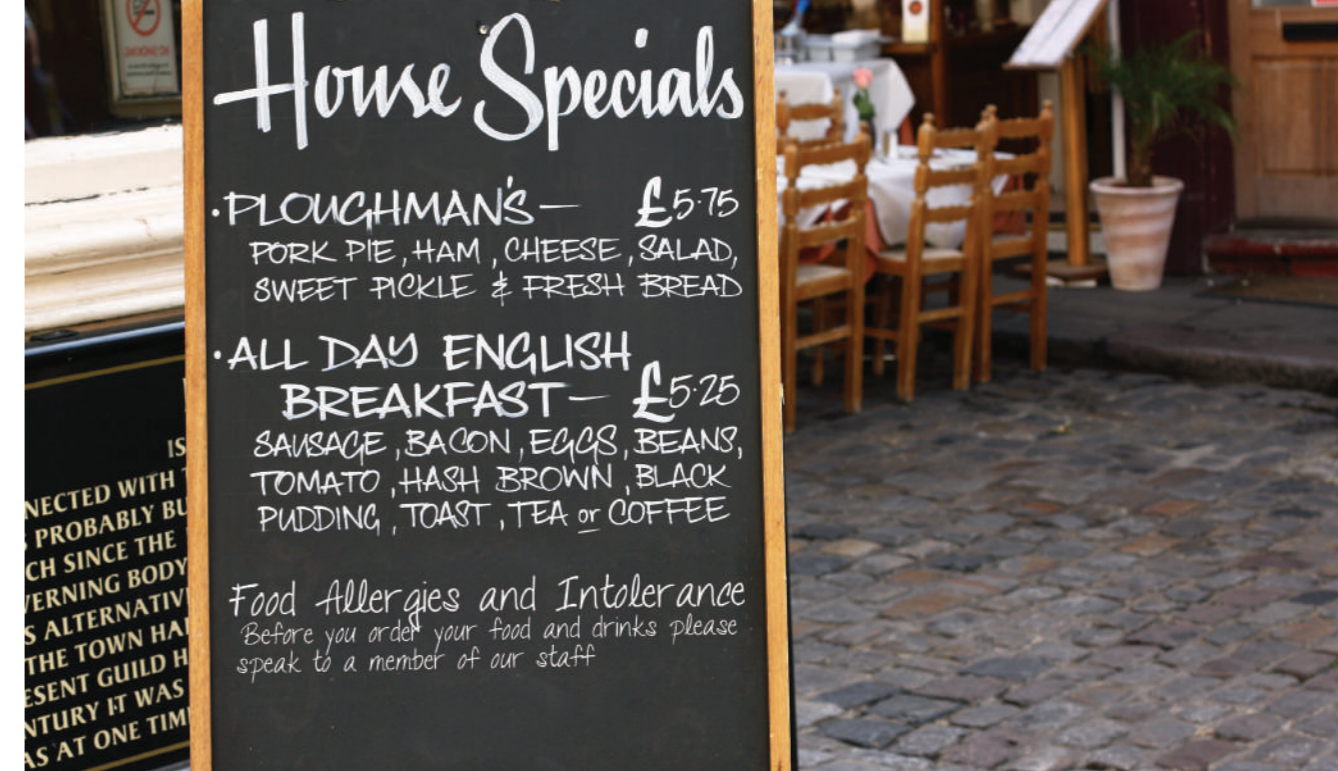 House Specials
·PLOUGHMAN'S— £5·75
PORK PIE, HAM, CHEESE, SALAD,
SWEET PICKLE & FRESH BREAD
·ALL DAY ENGLISH
BREAKFAST— £5·25
SAUSAGE, BACON, EGGS, BEANS,
TOMATO, HASH BROWN, BLACK
PUDDING, TOAST, TEA or COFFEE
Food Allergies and Intolerance
Before you order your food and drinks please
speak to a member of our staff
IS
NNECTED WITH
PROBABLY BU
CH SINCE THE
VERNING BODY
S ALTERNATIV
THE TOWN HA
ESENT GUILD H
NTURY IT WAS
AS AT ONE TIM